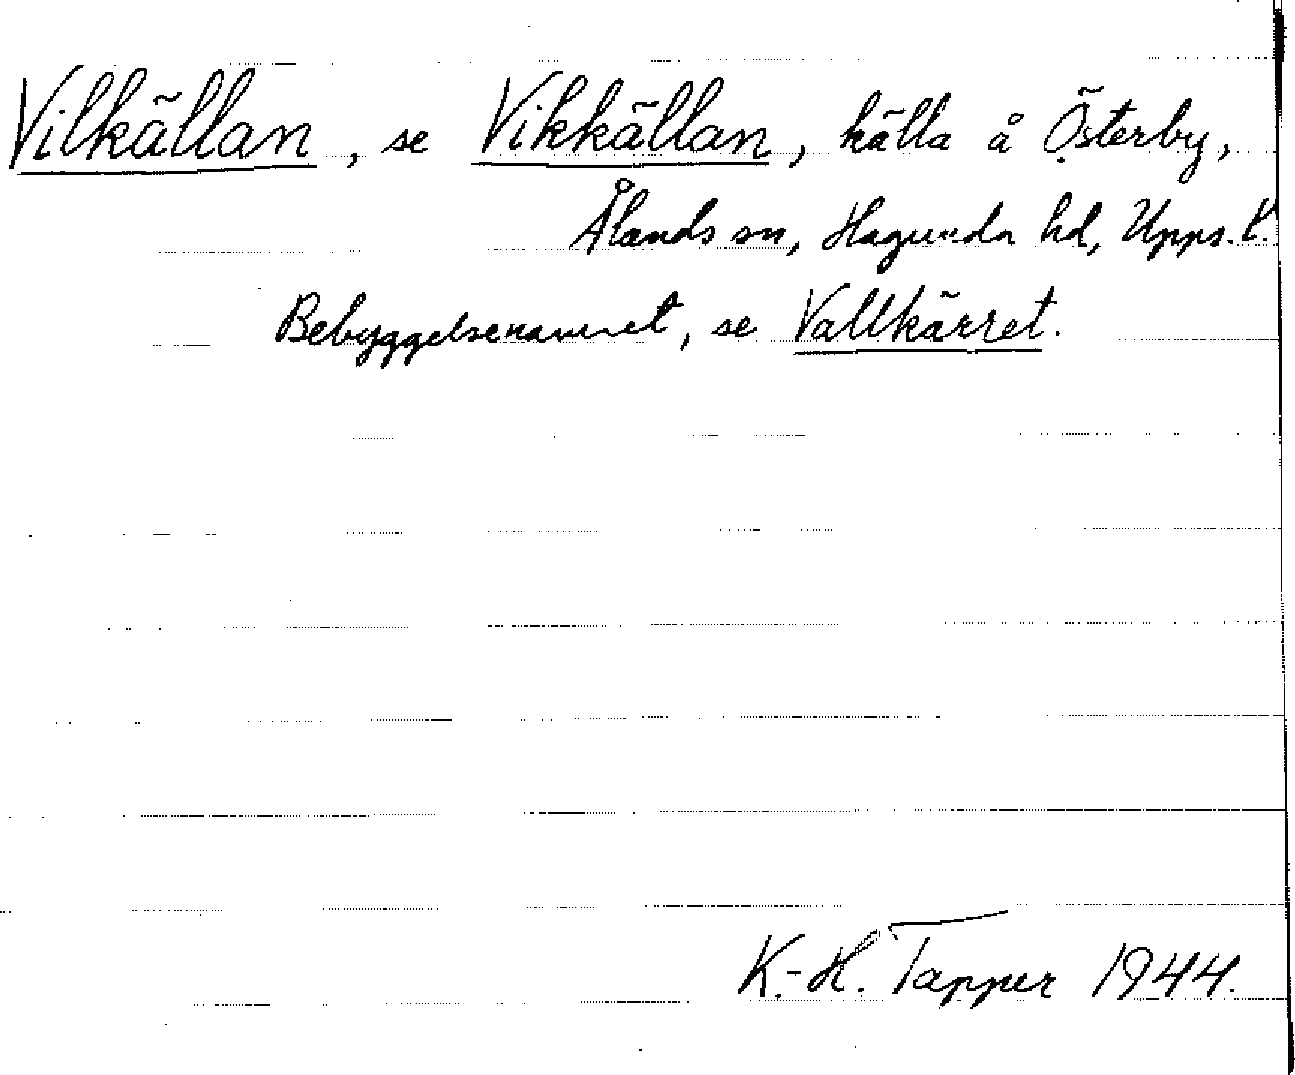 Vilkällan, se Vikkällan, källa å Österby,
Ålands sn, Hagunda hd, Upps. l.
Bebyggelsenamnet, se Vallkärret.
K.-H. Tapper 1944.